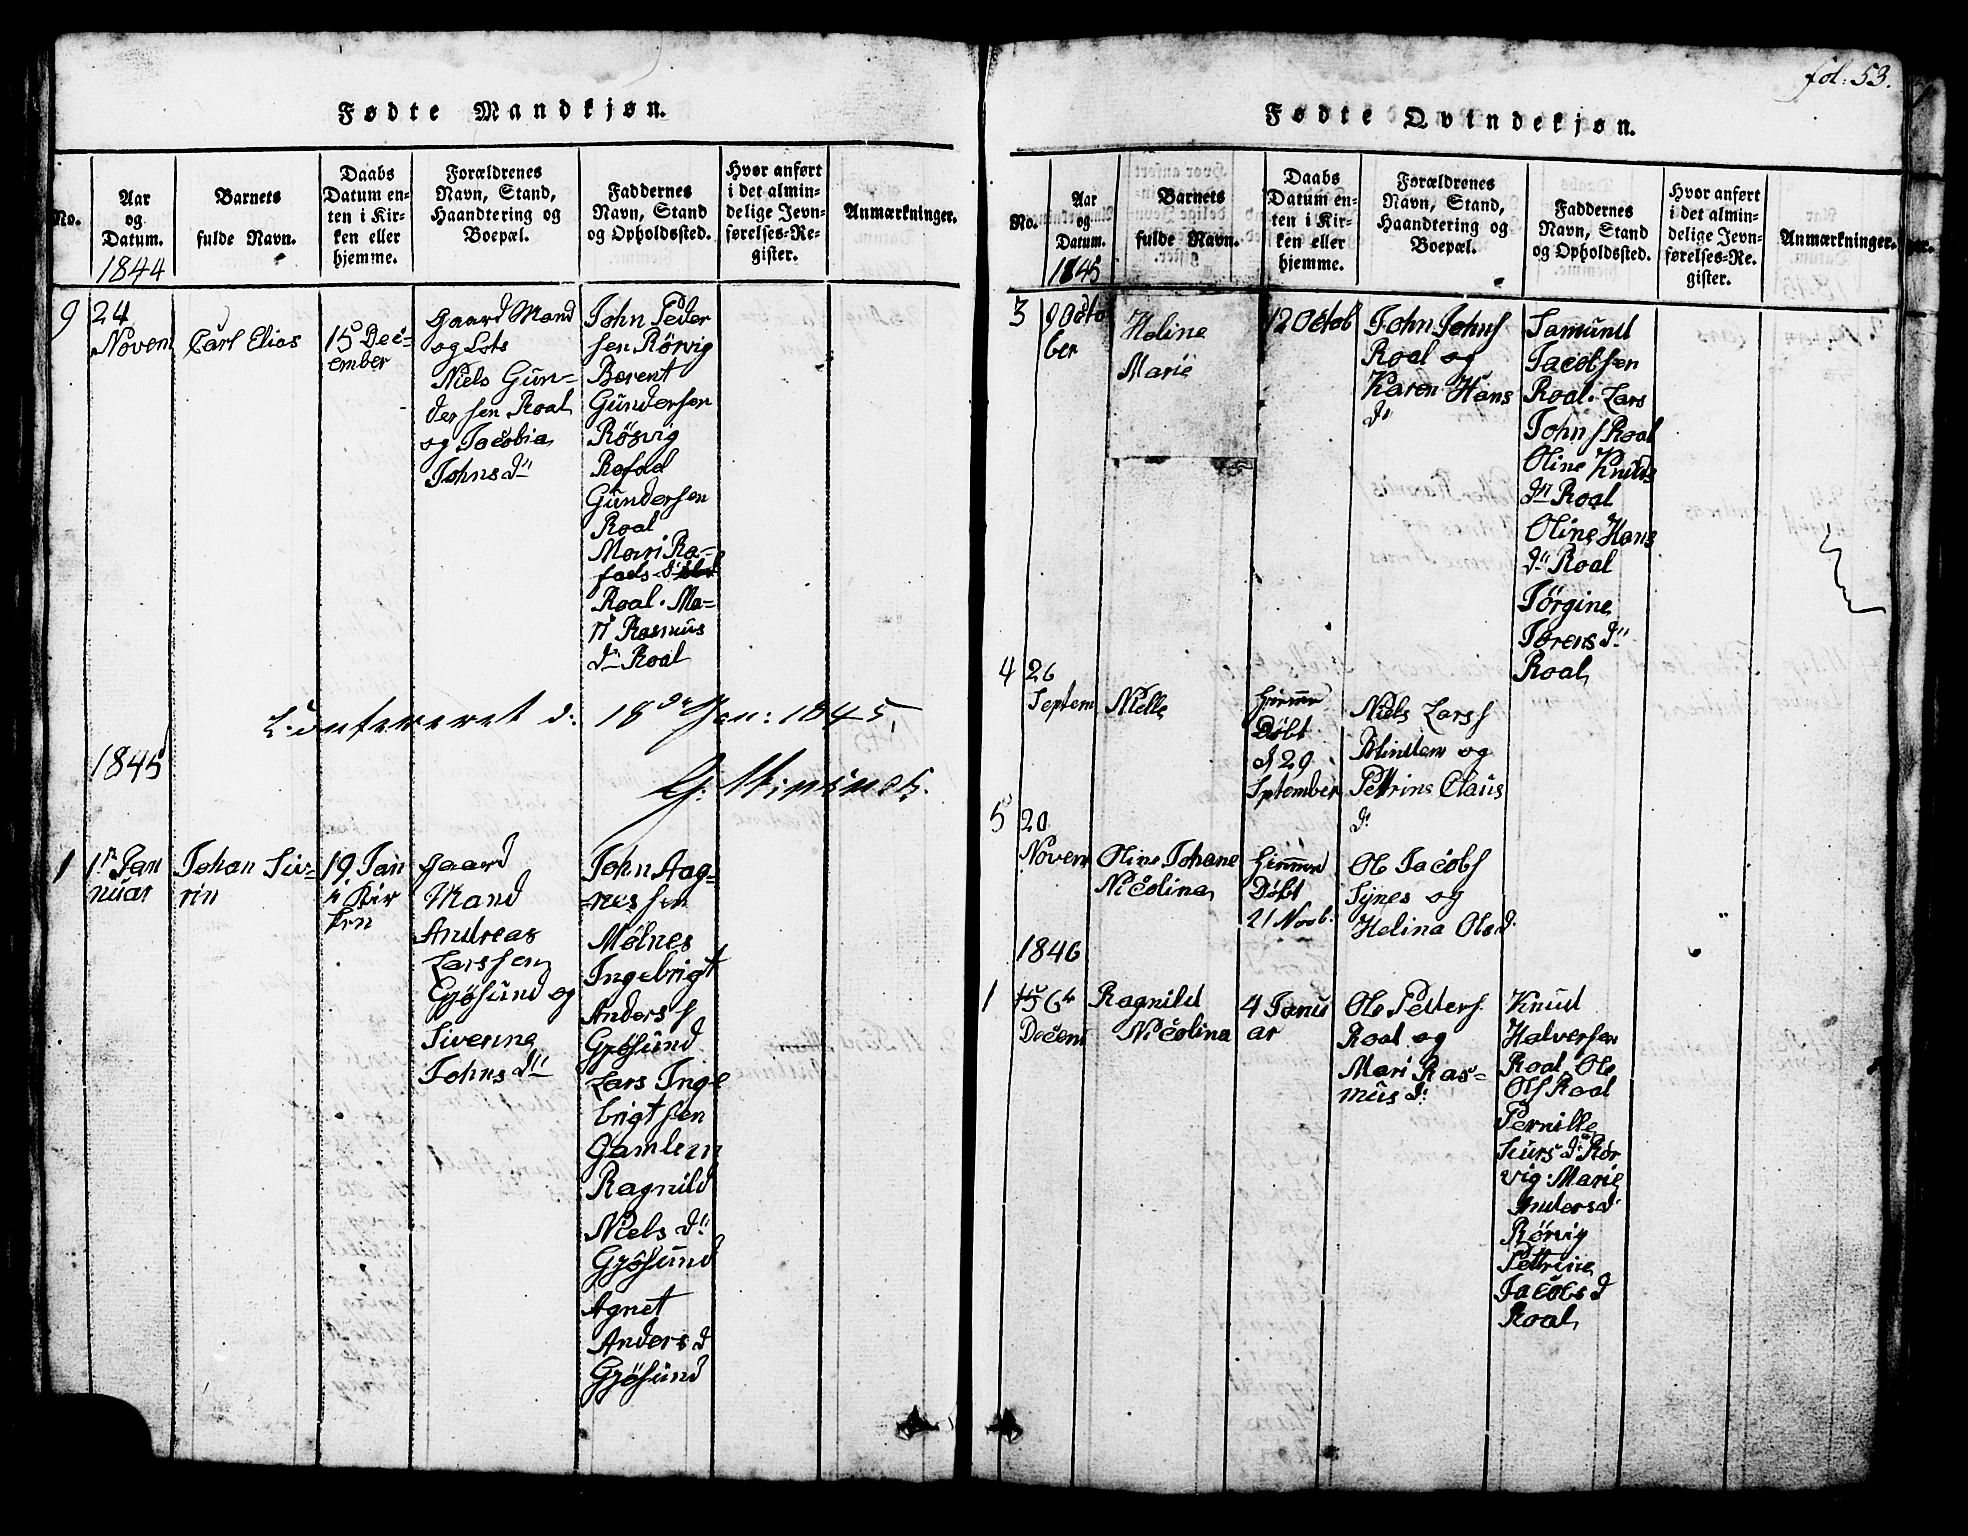 fol: 53.
Fødte Mandkjøn.
No.
Aar
og
Datum.
1844
Barnets
fulde Navn.
Daabs
Datum en-
ten i Kir-
ken eller
hjemme.
Forældrenes
Navn, Stand,
Haandtering og
Boepæl.
Faddernes
Navn, Stand
og Opholdssted.
Hvor anført
i det almin-
delige Jevn-
førelses-Re-
gister.
Anmærkninger.
9
24
Novem
Carl Elias
15 Dec-
ember
Gaard Mand
og Lots
Niels Gun-
dersen Roal
og Jacobia
Johnsdn
John Peder
sen Rörvig
Berent
Gundersen
Rösvig
Rafad
Gundersen
Roal
Mari Ra-
fads d
Roal. Ma-
n Rasmus
dn Roal
Confereret d: 18de Jan: 1845.
1845
1
1n Jan
nuar
Johan Siv-
rin
19 Jan
i Kir
ken
Gaard
Mand
Andreas
Larssen
Gjösund og
Siverine
Johns dn
John Aag-
nessen
Mölnes
Ingebrigt
Anders s
Gjösund
Lars Inge
brigtsen
Gamlem
Ragnild
Niels dn
Gjösund
Agnet
Anders d
Gjösund
Fødte Qvindekjøn.
No.
Aar
og
Datum.
1845
Barnets
fulde Navn.
Daabs
Datum en-
ten i Kir-
ken eller
hjemme.
Forældrenes
Navn, Stand,
Haandtering og
Boepæl.
Faddernes
Navn, Stand
og Opholdssted.
Hvor anført
i det almin-
delige Jevn-
førelses-Re-
gister.
Anmærkninger.
3
9 Octo
ber
Heline
Marie
12 Octob
John Johns
Roal og
Karen Hans
dn
Samund
Jacobsen
Roal. Lars
Johns Roal
Oline Knuds
dn Roal
Oline Hans
dn Roal
Jörgine
Jörens dn
Roal
4
26
Septem
Nielle
Hiemme
Döbt
d 29
September
Niels Lars s
Blindem og
Pettrine Claus
d:
5
20
Novem
Oline Johane
Nicolina
Hiemme
Döbt
21 Novb.
Ole Jacobs
Synes og
Helina Olsd.
1846
1
6te
Decem
Ragnild
Nicolina
4 Janu
ar
Ole Petters.
Roal og
Mari Ras-
mus d:
Knud
Halversen
Roal, Ole
Ols Roal
Pernille
Siurs dn Rör
vig. Marie
Anders d.
Rörvig
Pettrine
Jacobs d
Roal